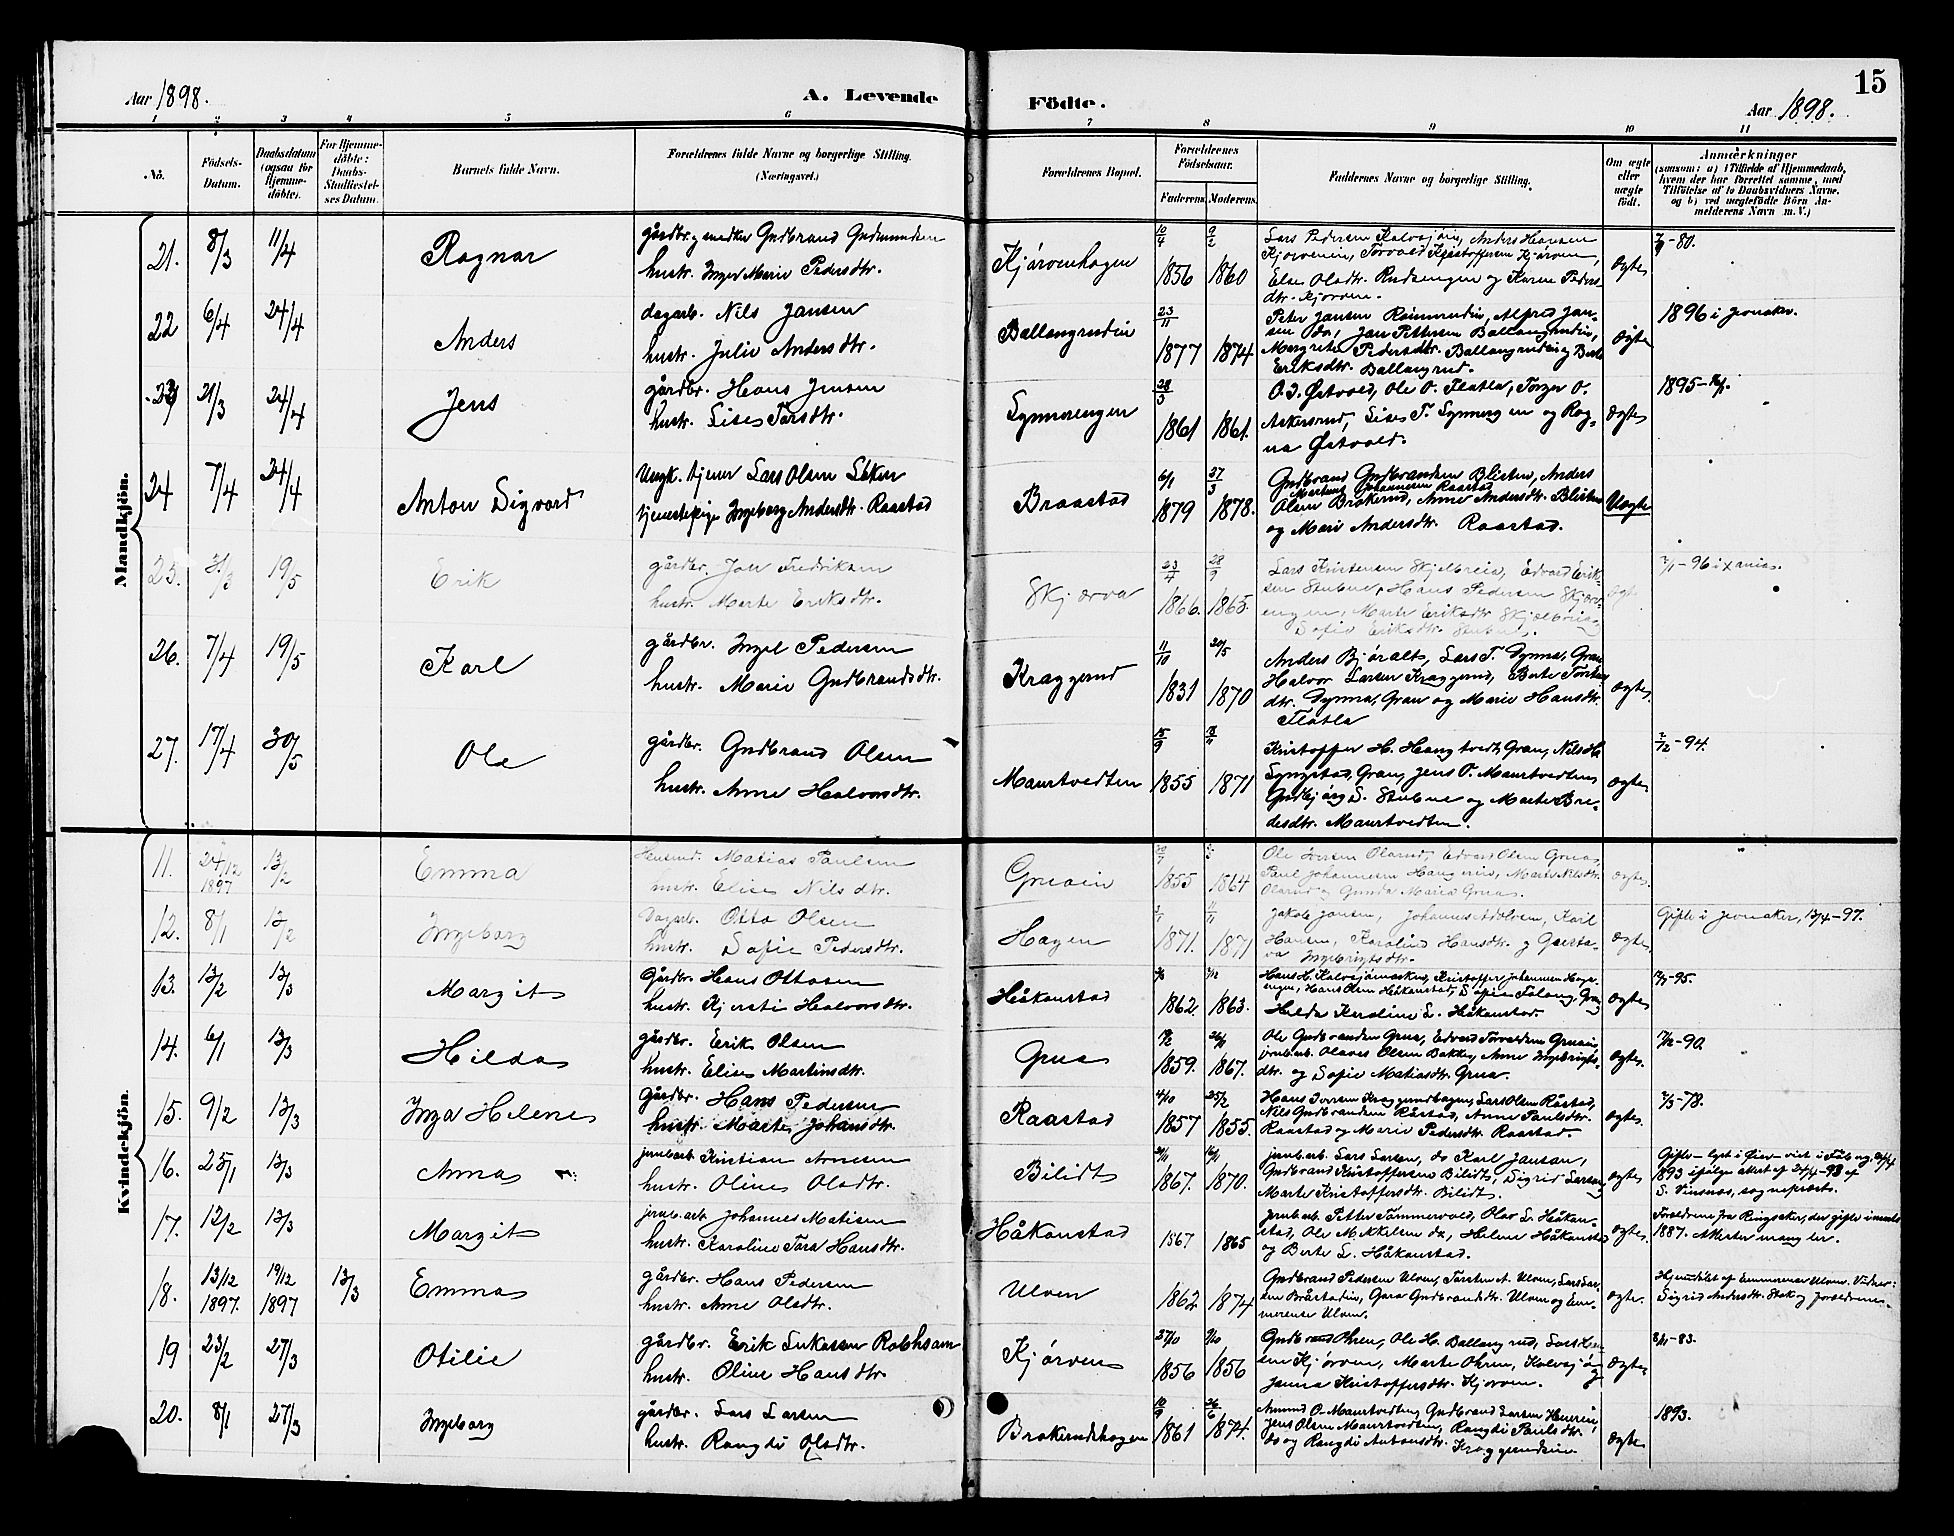 15
Aar 1898. A. Levende Födte. Aar 1898.
1 2 3 4 5 6 7 8 9 10 11
No. Födsels-Datum. Daabsdatum (ogsaa for Hjemme-döbte). For Hjemme-döbte: Daabs-Stadfæstel-ses Datum. Barnets fulde Navn. Forældrenes fulde Navne og borgerlige Stilling. (Næringsvei.) Forældrenes Bopæl. Forældrenes Födselsaar. Faderens. Moderens. Faddernes Navne og borgerlige Stilling. Om ægte eller uægte födt. Anmærkninger (saasom: a) i Tilfælde af Hjemmedaab, hvem der har forrettet samme, med Tilföielse af to Daabsvidners Navne, og b) ved uægtefödte Börn An-melderens Navn m. V.)
Mandkjön.
21. 8/3 11/4 Ragnar gårdbr. g snedker Gudbrand Gudmundsen
hustr. Inger Marie Pedersdtr. Kjørvenhagen 10/4 1856 9/2 1860
Else Olsdtr. Rudsengen og Karen Peders-
dtr. Kjørven. ægte -80.
22 6/4 24/4 Anders dagarb. Nils Jansen
hustr. Julie Andersdtr. Ballangrudin 23/11 1877 1874
Peter Jansen Roimerudin, Alfred Jan-
sen do, Jan Pettersen Ballangrudin,
Margrete Pedersdtr. Ballangrudin og Berte
Eriksdtr. Ballangrud. ægte 1896 i Jevnaker.
23 21/3 24/4 Jens gårdbr. Hans Jensen
hustr. Lise Larsdtr. Synnerengen 28/3 1861 1861.
O. J. Østvold, Ole O. Flatla, Torger O.
Askersrud, Lise T. Synnerengen og Rag-
na Østvold. ægte 1895
24 7/4 24/4 Anton Sigvard Ungk. tjener Lars Olsen
tjenestepige Ingeborg Andersdtr. Raastad Braastad 6/1 1879 27/3 1878.
Gudbrand Gudbrandsen Blisten, Anders
Martinus Johannesen Raastad
Olsen Brakerud, Anne Andersdtr. Blisten
og Mari Andersdtr. Raastad. Uægte
25. 31/3 19/5 Erik gårdbr. Jon Fredriksen
hustr. Marte Eriksdtr. Skjærva 23/4 1866. 28/9 1865.
Lars Kristensen Skjelbreia, Edvard Erik-
sen Stubne, Hans Pedersen Skjærv-
engen, Marte Eriksdtr Skjelbreia,
Sofie Eriksdtr. Stubne. ægte -96 i Xania.
26. 7/4 19/5 Karl gårdbr. Ingel Pedersen
hustr. Marie Gudbrandsdtr. Kraggerud 11/10 1831 20/5 1870
Anders Bjøralt, Lars T. Dynna, Gran
Halvor Larsen Kraggerud, Berte Torstens
dtr. Dynna, Gran og Marie Hansdtr.
Flatla ægte.
27. 17/4 30/5 Ole gårdbr. Gudbrand Olsen
hustr. Anne Halvorsdtr. Maurtvedten 15/9 1855 1871
Kristoffer H. Haugtvedt, Gran, Nils H.
Lyngstad, Gran, Jens O. Maurtvedten,
Gudbjørg S. Stubne og Marte Bre-
desdtr. Maurtvedten. ægte. 2/12 -94.
Kvindekjön.
11. 24/12 1897 13/2 Emma Husmd. Matias Paulsen
hustr. Elise Nilsdtr. Gruain 1855 1864
Ole Iversen Olarud, Edvard Olsen Grua,
Paul Johannesen Haugerein, Marte Nilsdtr.
Olarud og Gunda Marie Grua. ægte.
12. 8/1 13/2 Ingeborg Dagarb. Otto Olsen
hustr. Sofie Pedersdtr. Hagen 1871. 1871
Jakob Jansen, Johannes Adolvsen, Karl
Hansen, Karoline Hansdtr. og Gusta-
va Ingebrigtsdtr. ægte. Gifte i Jevnaker, 13/4 -97.
13. 13/2 13/3 Margit Gårdbr. Hans Ottosen
hustr. Kjersti Halvorsdtr. Håkonstad 1862. 1863.
Hilda Karoline L. Håkonstad. ægte -95.
14. 6/1 13/3 Hilda gårdbr. Erik Olsen
hustr. Elise Martinsdtr. Grua 1859. 1867.
Ole Gudbrandsen Grua, Edvard Torvaldsen Gruain,
jernb.arb. Olaves Olsen Bakke, Anne Ingebrigts-
dtr. og Sofie Matiasdtr. Grua. ægte. -90.
15. 9/2 13/3 Inga Helene Gårdbr. Hans Pedersen
hustr. Marte Johansdtr. Raastad 4/10 1857 25/2 1855.
Hans Iversen Kraggerudhagen, Lars Olsen Råstad,
Nils Gudbrandsen Råstad, Anne Paulsdtr.
Raastad og Marie Pedersdtr. Raastad. ægte. -78.
16. 25/1 13/3 Anna jernb.arb. Kristian Arnesen
hustr. Oline Olsdtr. Bilidt 1867. 1870.
jernb.arb. Lars Larsen, do Karl Jansen,
Gudbrand Kristoffersen Bilidt, Sigrid Larsen,
Marte Kristoffersdtr. Bilidt. ægte
1893 ifølge attest af 24/4 -93 af
S. Vinsnes, sogneprest.
17. 12/2 13/3 Margit jernb.arb. Johannes Matisen
hustr. Karoline Tora Hansdtr. Håkonstad 1867 1865
Jernb.arb. Petter Tømmervold, Olav L. Håkon-
stad, Ole Mikkelsen do, Helene Håkonstad
og Berte L. Håkonstad. ægte. Forældrene fra Ringsaker, der gifte i
1887. Attester mangler.
18. 13/12 1897. 19/12 1897 13/3 Emma gårdbr. Hans Pedersen
hustr. Anne Olsdtr. Ulven 1862 1874
Gudbrand Pedersen Ulven, Torsten A. Ulven, Lars Lar-
sen Bråstadin, Gara Gudbrandsdtr. Ulven og Em-
merense Ulven. ægte. Hjemdøbt af Emmerense Ulven. Vidner:
Sigrid Andersdtr. Stak og forældrene.
19 23/2 27/3 Otilie gårdbr. Erik Lukassen
hustr. Oline Hansdtr Kjørven 27/10 1856 9/10 1856
Gudbrand Ohren, Ole H. Ballangrud, Lars Han-
sen Kjørven, Marte Ohren, Kalvsjø og
Janna Kristoffersdtr. Kjørven. ægte. -83.
20. 8/1 27/3 Ingeborg gårdbr. Lars Larsen
hustr. Rangdi Olsdtr. Brakerudhagen 1861 26/6 1874.
Amund O. Maurtvedten, Gudbrand Larsen
Jens Olsen Maurtvedten, Rangdi Paulsdtr.
do og Rangdi Antonsdtr. Kraggerudein. ægte 1893.